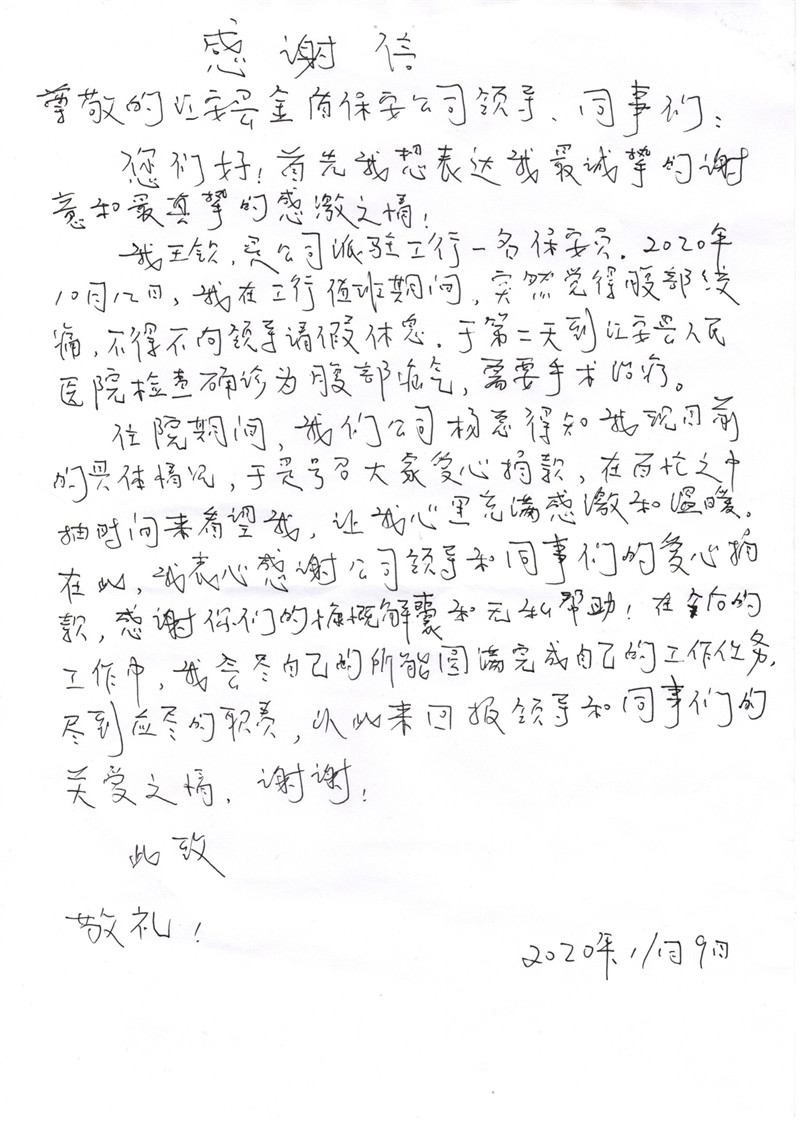 感谢信
尊敬的江安县金盾保安公司领导、同事们：
您们好！首先我想表达我最诚挚的谢
意和最真挚的感激之情！
我王钦，是公司派驻工行一名保安员。2020年
10月12日，我在工行值班期间，突然觉得腹部绞
痛，不得不向领导请假休息。于第二天到江安县人民
医院检查确诊为腹部疝气，需要手术治疗。
住院期间，我们公司杨总得知我现目前
的具体情况，于是号召大家爱心捐款，在百忙之中
抽时间来看望我，让我心里充满感激和温暖。
在此，我衷心感谢公司领导和同事们的爱心捐
款，感谢你们的慷慨解囊和无私帮助！在今后的
工作中，我会尽自己的所能圆满完成自己的工作任务，
尽到应尽的职责，以此来回报领导和同事们的
关爱之情。谢谢！
此致
敬礼！
2020年11月9日